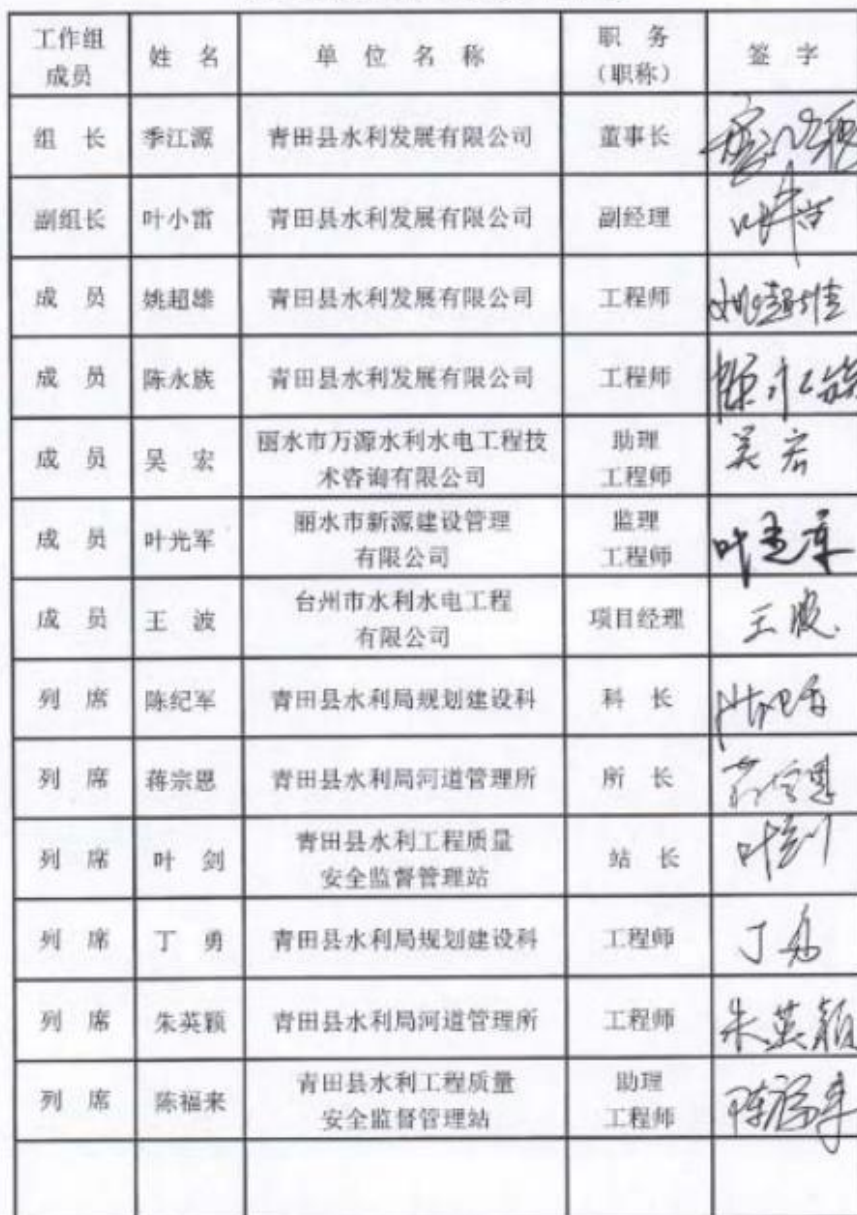 工作组成员 姓 名 单 位 名 称 职 务（职称） 签 字
组 长 季江源 青田县水利发展有限公司 董事长
副组长 叶小雷 青田县水利发展有限公司 副经理
成 员 姚超雄 青田县水利发展有限公司 工程师 姚超雄
成 员 陈永族 青田县水利发展有限公司 工程师 陈永族
成 员 吴 宏 丽水市万源水利水电工程技术咨询有限公司 助理工程师 吴宏
成 员 叶光军 丽水市新源建设管理有限公司 监理工程师 叶光军
成 员 王 波 台州市水利水电工程有限公司 项目经理 王波
列 席 陈纪军 青田县水利局规划建设科 科 长
列 席 蒋宗恩 青田县水利局河道管理所 所 长 蒋宗恩
列 席 叶 剑 青田县水利工程质量安全监督管理站 站 长 叶剑
列 席 丁 勇 青田县水利局规划建设科 工程师 丁勇
列 席 朱英颖 青田县水利局河道管理所 工程师 朱英颖
列 席 陈福来 青田县水利工程质量安全监督管理站 助理工程师 陈福来